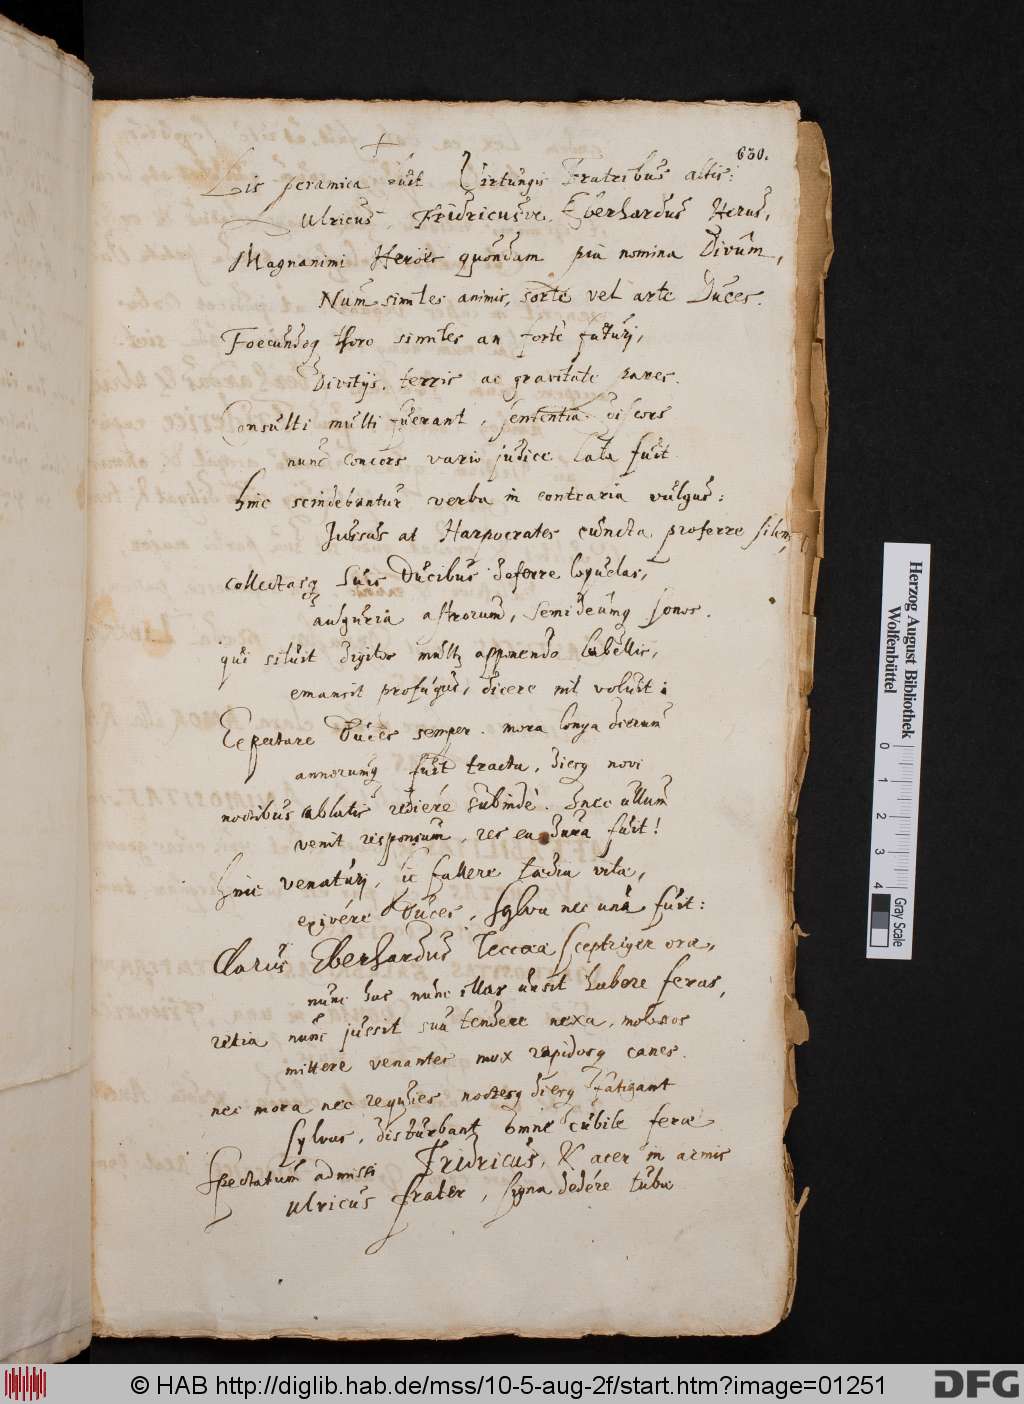 650.
Lis peramica fuit Virtungis Fratribus altis:
Ulricus, Fridricusve, Eberhardus Herus,
Magnanimi Heröes quondam pia nomina Divûm,
Num similes animis, sorte vel arte Duces.
Foecundoq thoro similes an forte futuri,
Divitijs, terris ac gravitate pares.
Consulti multi fuerant, sententia discors
nunc concors vario judice lata fuit.
hinc scindebantur verba in contraria vulgus:
Jussus at Harpocrates cuncta proferre silens,
collectasq suis Ducibus deferre loquelas,
auguria astrorum, semideûmq sonos.
qui siluit digitos multis apponendo labellis,
emansit profugus, dicere nil voluit:
Expectare Duces semper. mora longa dierum
annorumq fuit tracta, diesq novi
noctibus ablatis rediére subinde. hnec ullum
venit responsum, res ea dura fuit!
hinc venaturi, sic fallere tædia vitæ,
exivére Duces, sylva nec una fuit:
Clarus Eberhardus Teccæa sceptriger ora,
nunc has nunc illas ursit habere feras,
retia nunc jussit sua tendere nexa, molossos
mittere venantes mox rapidosq canes.
nec mora nec requies noctesq diesq fatigant
sylvas, disturbant omne cubile feræ
Spectatum admissi Fridricus, & acer in armis
Ulricus frater, signa dedére tuba
Herzog August Bibliothek
Wolfenbüttel
0 1 2 3 4
Gray Scale
© HAB http://diglib.hab.de/mss/10-5-aug-2f/start.htm?image=01251
DFG